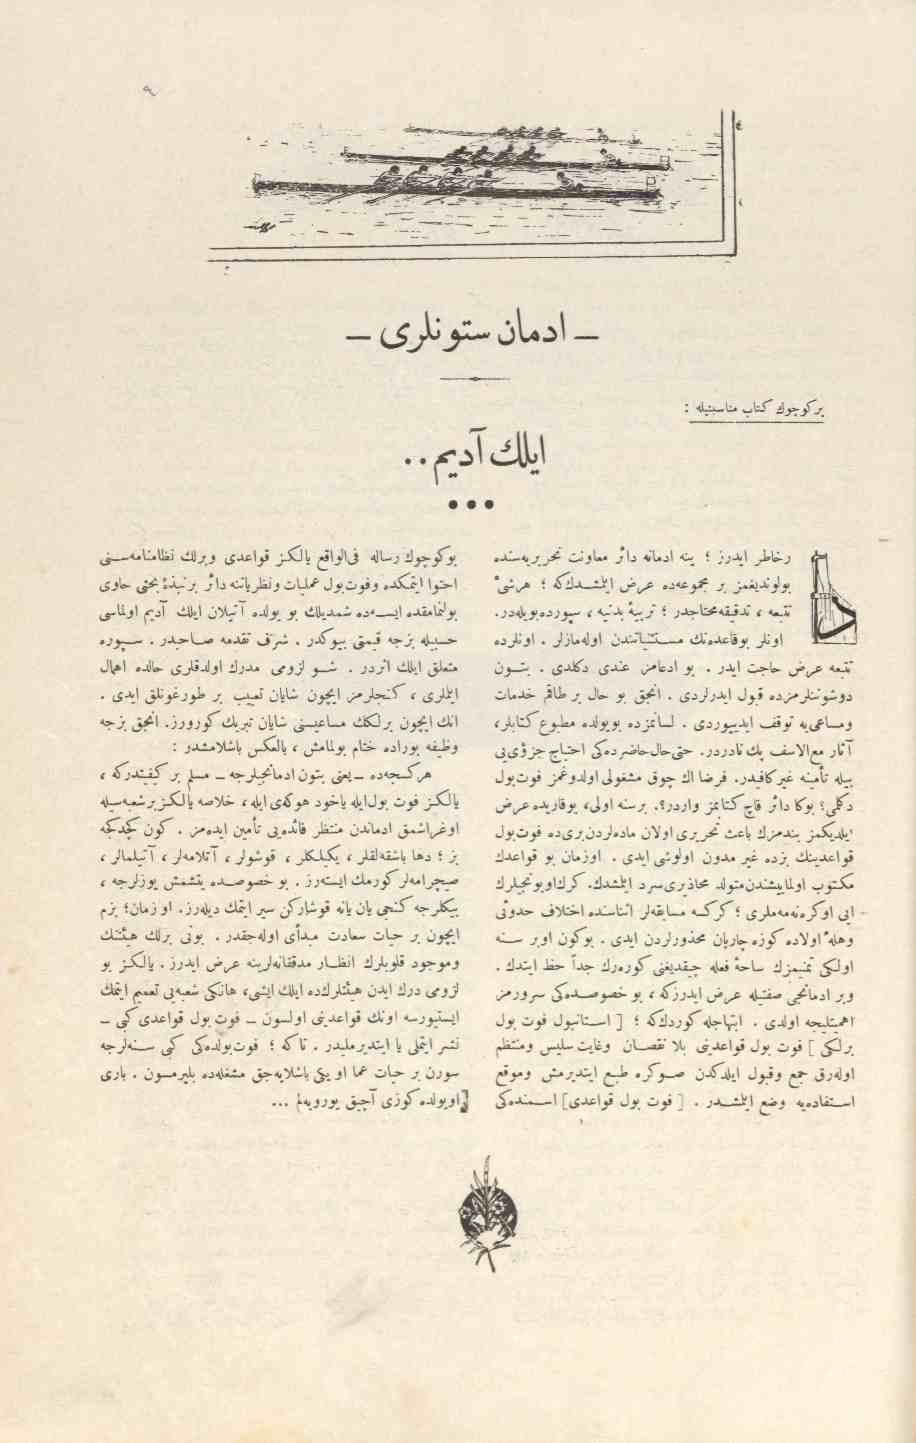 ٩
ـ ادمان ستونلرى ـ
بر كوچوك كتاب مناسبتيله :
ايلك آديم . .
درخاطر ايدرز ؛ ينه ادمانه دائر معاونت تحريريه‌سنده
بولونديغمز بر مجموعه‌ده عرض ايتمشدك‌كه ؛ هر شئ
تتبعه ، تدقيقه محتاجدر ؛ تربيۀ بدنيه ، سپورده بويله‌در.
اونلر بوقاعده‌نك مستثنياتندن اوله‌مازلر . اونلرده
تتبعه عرض حاجت ايدر . بو ادعامز عندى دكلدى . بتون
دوشونلرمزده قبول ايدرلردى . انجق بو حال بر طاقم خدمات
ومساعى‌يه توقف ايدييوردى . لسانمزده بويولده مطبوع كتابلر ،
آثار مع‌الاسف پك نادردر. حتى حال‌حاضرده‌كى احتياج جزؤى‌يى
بيله تأمينه غير كافيدر. فرضا اك چوق مشغولى اولدوغمز فوت‌بول
دكلمى؟ بوكا دائر قاچ كتابمز واردر؟. برسنه اولى، يوقاريده عرض
ايلديكمز بندمزك باعث تحريرى اولان ماده‌لردن برى‌ده فوت‌بول
قواعدينك بزده غير مدون اولوشى ايدى . اوزمان بو قواعدك
مكتوب اولمايیشندن متولد محاذيرى سرد ايتمشدك. كرك اويونجيلرك
ايى اوكرنه‌مه‌ملرى ؛ كركسه مسابقه‌لر اثناسنده اختلاف حدوثى
وهله‌ اولاده كوزه چارپان محذورلردن ايدى . بوكون اوبر سنه
اولكى تمنيمزك ساحۀ فعله چيقديغنى كوره‌رك جداً حظ ايتدك .
وبر ادمانجى صفتيله عرض ايدرزكه ، بو خصوصده‌كى سرورمز
اهميتليجه اولدى . ابتهاجله كوردك‌كه ؛ [ استانبول فوت بول
برلكى ] فوت بول قواعدينى بلا نقصان وغايت سليس ومنتظم
اوله‌رق جمع وقبول ايلدكدن صوكره طبع ايتديرمش وموقع
استفاده‌يه وضع ايلمشدر . [ فوت بول قواعدى] اسمنده‌كى
بوكوچوك رساله فى‌الواقع يالكز قواعدى وبرلك نظامنامه‌سنى
احتوا ايتمكده وفوت‌بول عمليات ونظرياتنه دائر بر نبذۀ بحثى حاوى
بولنمامقده ايسه‌ده شمديلك بو يولده آتيلان ايلك آديم اولماسى
حسبيله بزجه قيمتى بيوكدر . شرف تقدمه صاحبدر . سپوره
متعلق ايلك اثردر . شو لزومى مدرك اولدقلرى حالده اهمال
ايتملرى ، كنجلرمز ايچون شايان تعييب بر طورغونلق ايدى .
انك ايچون برلكك مساعيسنى شايان تبريك كورورز. انجق بزجه
وظيفه بوراده ختام بولمامش ، بالعكس باشلامشدر :
هركسجه‌ده ـ يعنى بتون ادمانجيلرجه ـ مسلم بر كيفيتدركه ،
يالكز فوت بول‌ايله ياخود هوكه‌ى ايله ، خلاصه يالكز برشعبه‌سيله
اوغراشمق ادماندن منتظر فائده‌يى تأمين ايده‌مز . كون كچدكجه
بز ؛ دها باشقه‌لقلر ، يكيلكلر ، قوشولر ، آتلامه‌لر ، آتيلمالر ،
صيچرامه‌لر كورمك ايسته‌رز . بو خصوصده يتشمش يوزلرجه ،
بيكلرجه كنجى يان يانه قوشاركن سير ايتمك ديله‌رز. او زمان؛ بزم
ايچون بر حيات سعادت مبدأى اوله‌جقدر. بونى برلك هيئتنك
وموجود قلوبلرك انظار مدققانه‌لرينه عرض ايدرز . يالكز بو
لزومى درك ايدن هيئتلرك‌ده ايلك ايشى ، هانكى شعبه‌يى تعميم ايتمك
ايستيورسه اونك قواعدينى اولسون ـ فوت بول قواعدى كبى ـ
نشر ايتملى يا ايتديرمليدر . تاكه ؛ فوت‌بولده‌كى كبى سنه‌لرجه
سورن بر حيات عما او يكى باشلايه‌جق مشغله‌ده بليرمسون . بارى
اوبولده كوزى آچيق يورويه‌لم ...